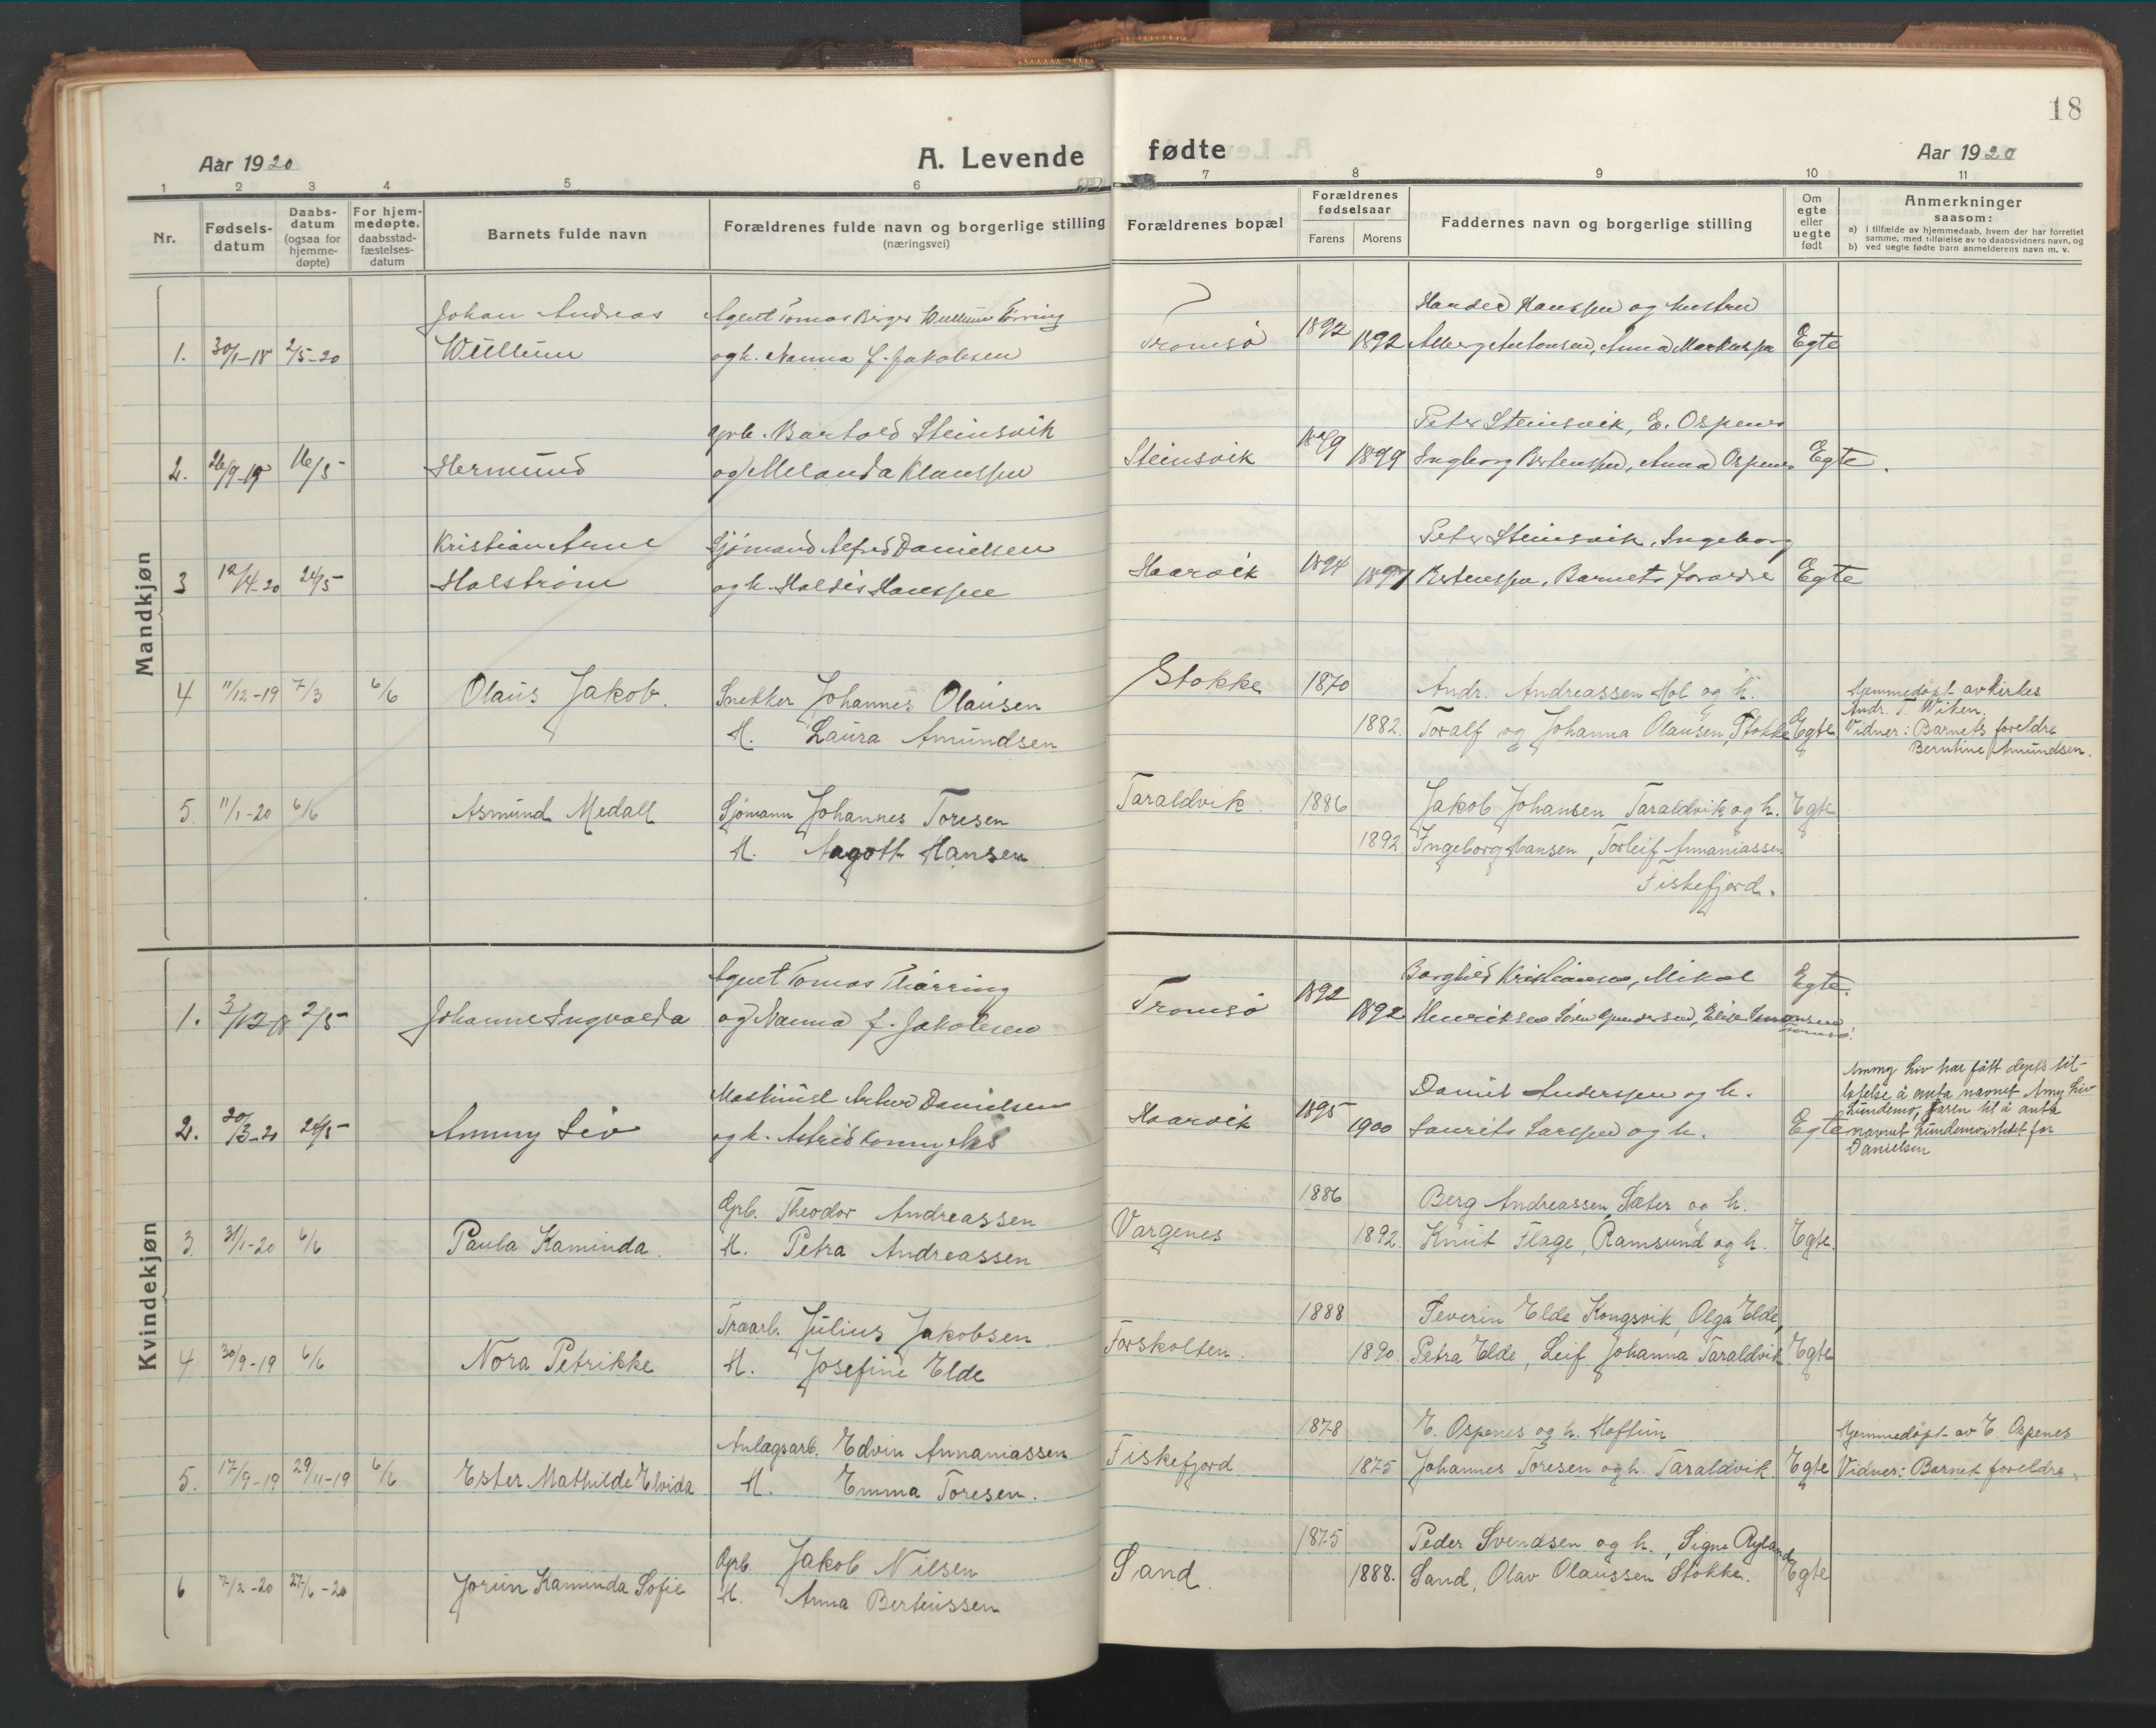 18
Aar 1920
A. Levende fødte
Aar 1920
1 2 3 4 5 6 7 8 9 10 11
Nr.
Fødsels-
datum
Daabs-
datum
(ogsaa for
hjemme-
døpte)
For hjem-
medøpte.
daabsstad-
fæstelses-
datum
Barnets fulde navn
Forældrenes fulde navn og borgerlige stilling
(næringsvei)
Forældrenes bopæl
Forældrenes
fødselsaar
Farens Morens
Faddernes navn og borgerlige stilling
Om
egte
eller
uegte
født
Anmerkninger
saasom:
a) i tilfælde av hjemmedaab, hvem der har forrettet
samme, med tilføielse av to daabsvidners navn, og
b) ved uegte fødte barn anmelderens navn m. v.
Mandkjøn
Johan Andreas Agent Tomas Birger Willum Tørring Hansen og hustru
1. 30/1-18 2/5-20 Willum og h. Nanna f. Jakobsen Tromsø 1892 1892 Egte
Grb. Bartold Steinsvik Peter Steinsvik, E. Ospenes
2. 26/9-19 16/5 Hermund og Melanda Klaussen Steinsvik 1899 Ingborg Bertenssen, Anna Ospenes Egte.
Kristian Arne Sjømand Alfred Danielsen Peter Steinsvik, Ingeborg
3 12/4-20 24/5 Holstrøm og h. Haldis Hanssen Haarvik 1894 1897 Bertenssen, Barnets forældre Egte
4 11/12-19 7/3 6/6 Olaus Jakob. Snekker Johannes Olausen Stokke 1870 Andr. Andreassen Hol og h. Hjemmedøpt av kirkes
Andr. T. Wiken.
H. Laura Amundsen 1882. Toralf og Johanna Olausen, Stokke Egte. Vidner: Barnets foreldre
Berntine Amundsen.
5. 11/1-20 6/6 Asmund Medall Sjømann Johannes Toresen Taraldvik. 1886 Jakob Johansen Taraldvik og h. Egte
H. Aagott Hansen 1892. Ingeborg Hansen, Torleif Annaniassen
Fiskefjord.
Kvindekjøn
Agent Tomas Thørring Borghild Kristiansen, Mikal Egte.
1. 3/12-18 2/5 Johanne Ingvalda og Nanna f. Jakobsen Tromsø 1892 1892 Henriksen Søren Gundersen, Elise Simonsen
Tromsø.
Ammy Liv har fått dept's til-
latelse å anta navnet Amy Liv
Maskinist Arthur Danielsen Daniel Anderssen og h. Lundemo, faren til å anta
2. 20/3-20 24/5 Ammy Liv og h. Astrid Haarvik 1895 1900 Laurits Larssen og h. Egte navnet Lundemo istedet for
Danielsen
Grb. Theodor Andreassen 1886 Berg Andreassen, Sæter og h.
3. 31/1-20 6/6 Paula Kaminda. H. Petra Andreassen Vargenes 1892. Knut Flage, Ramsund og h. Egte.
Træarb. Julius Jakobsen 1888 Severin Elde Kongsvik, Olga Elde,
4 30/9-19 6/6 Nora Petrikke H. Josefine Elde Forskolten. 1890. Petra Elde, Leif Johanna Taraldvik Egte
Anlagsarb. Edvin Annaniassen Fiskefjord 1878 E. Ospenes og h. Hoftun Hjemmedøpt av E. Ospenes
5. 17/9-19 29/11-19 6/6 Ester Mathilde Elvida H. Emma Toresen. 1875 Johannes Toresen og h. Taraldvik Egte Vidner: Barnet foreldre.
Grb. Jakob Nilsen Sand. 1875 Peder Svendsen og h., Signe Ryland
6 7/2-20 27/6-20 Jorun Kaminda Sofie H. Anna Berteussen 1888. Sand, Olav Olaussen Stokke. Egte